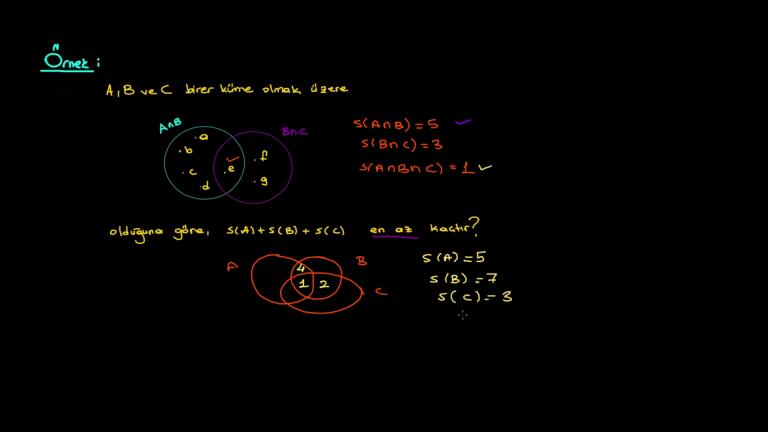 Örnek :
A, B ve C birer küme olmak üzere
A∩B
B∩C
a
b
c
d
e
f
g
s(A∩B) = 5
s(B∩C) = 3
s(A∩B∩C) = 1
olduğuna göre, s(A) + s(B) + s(C) en az kaçtır?
A
B
C
4
1 2
s(A) = 5
s(B) = 7
s(C) = 3